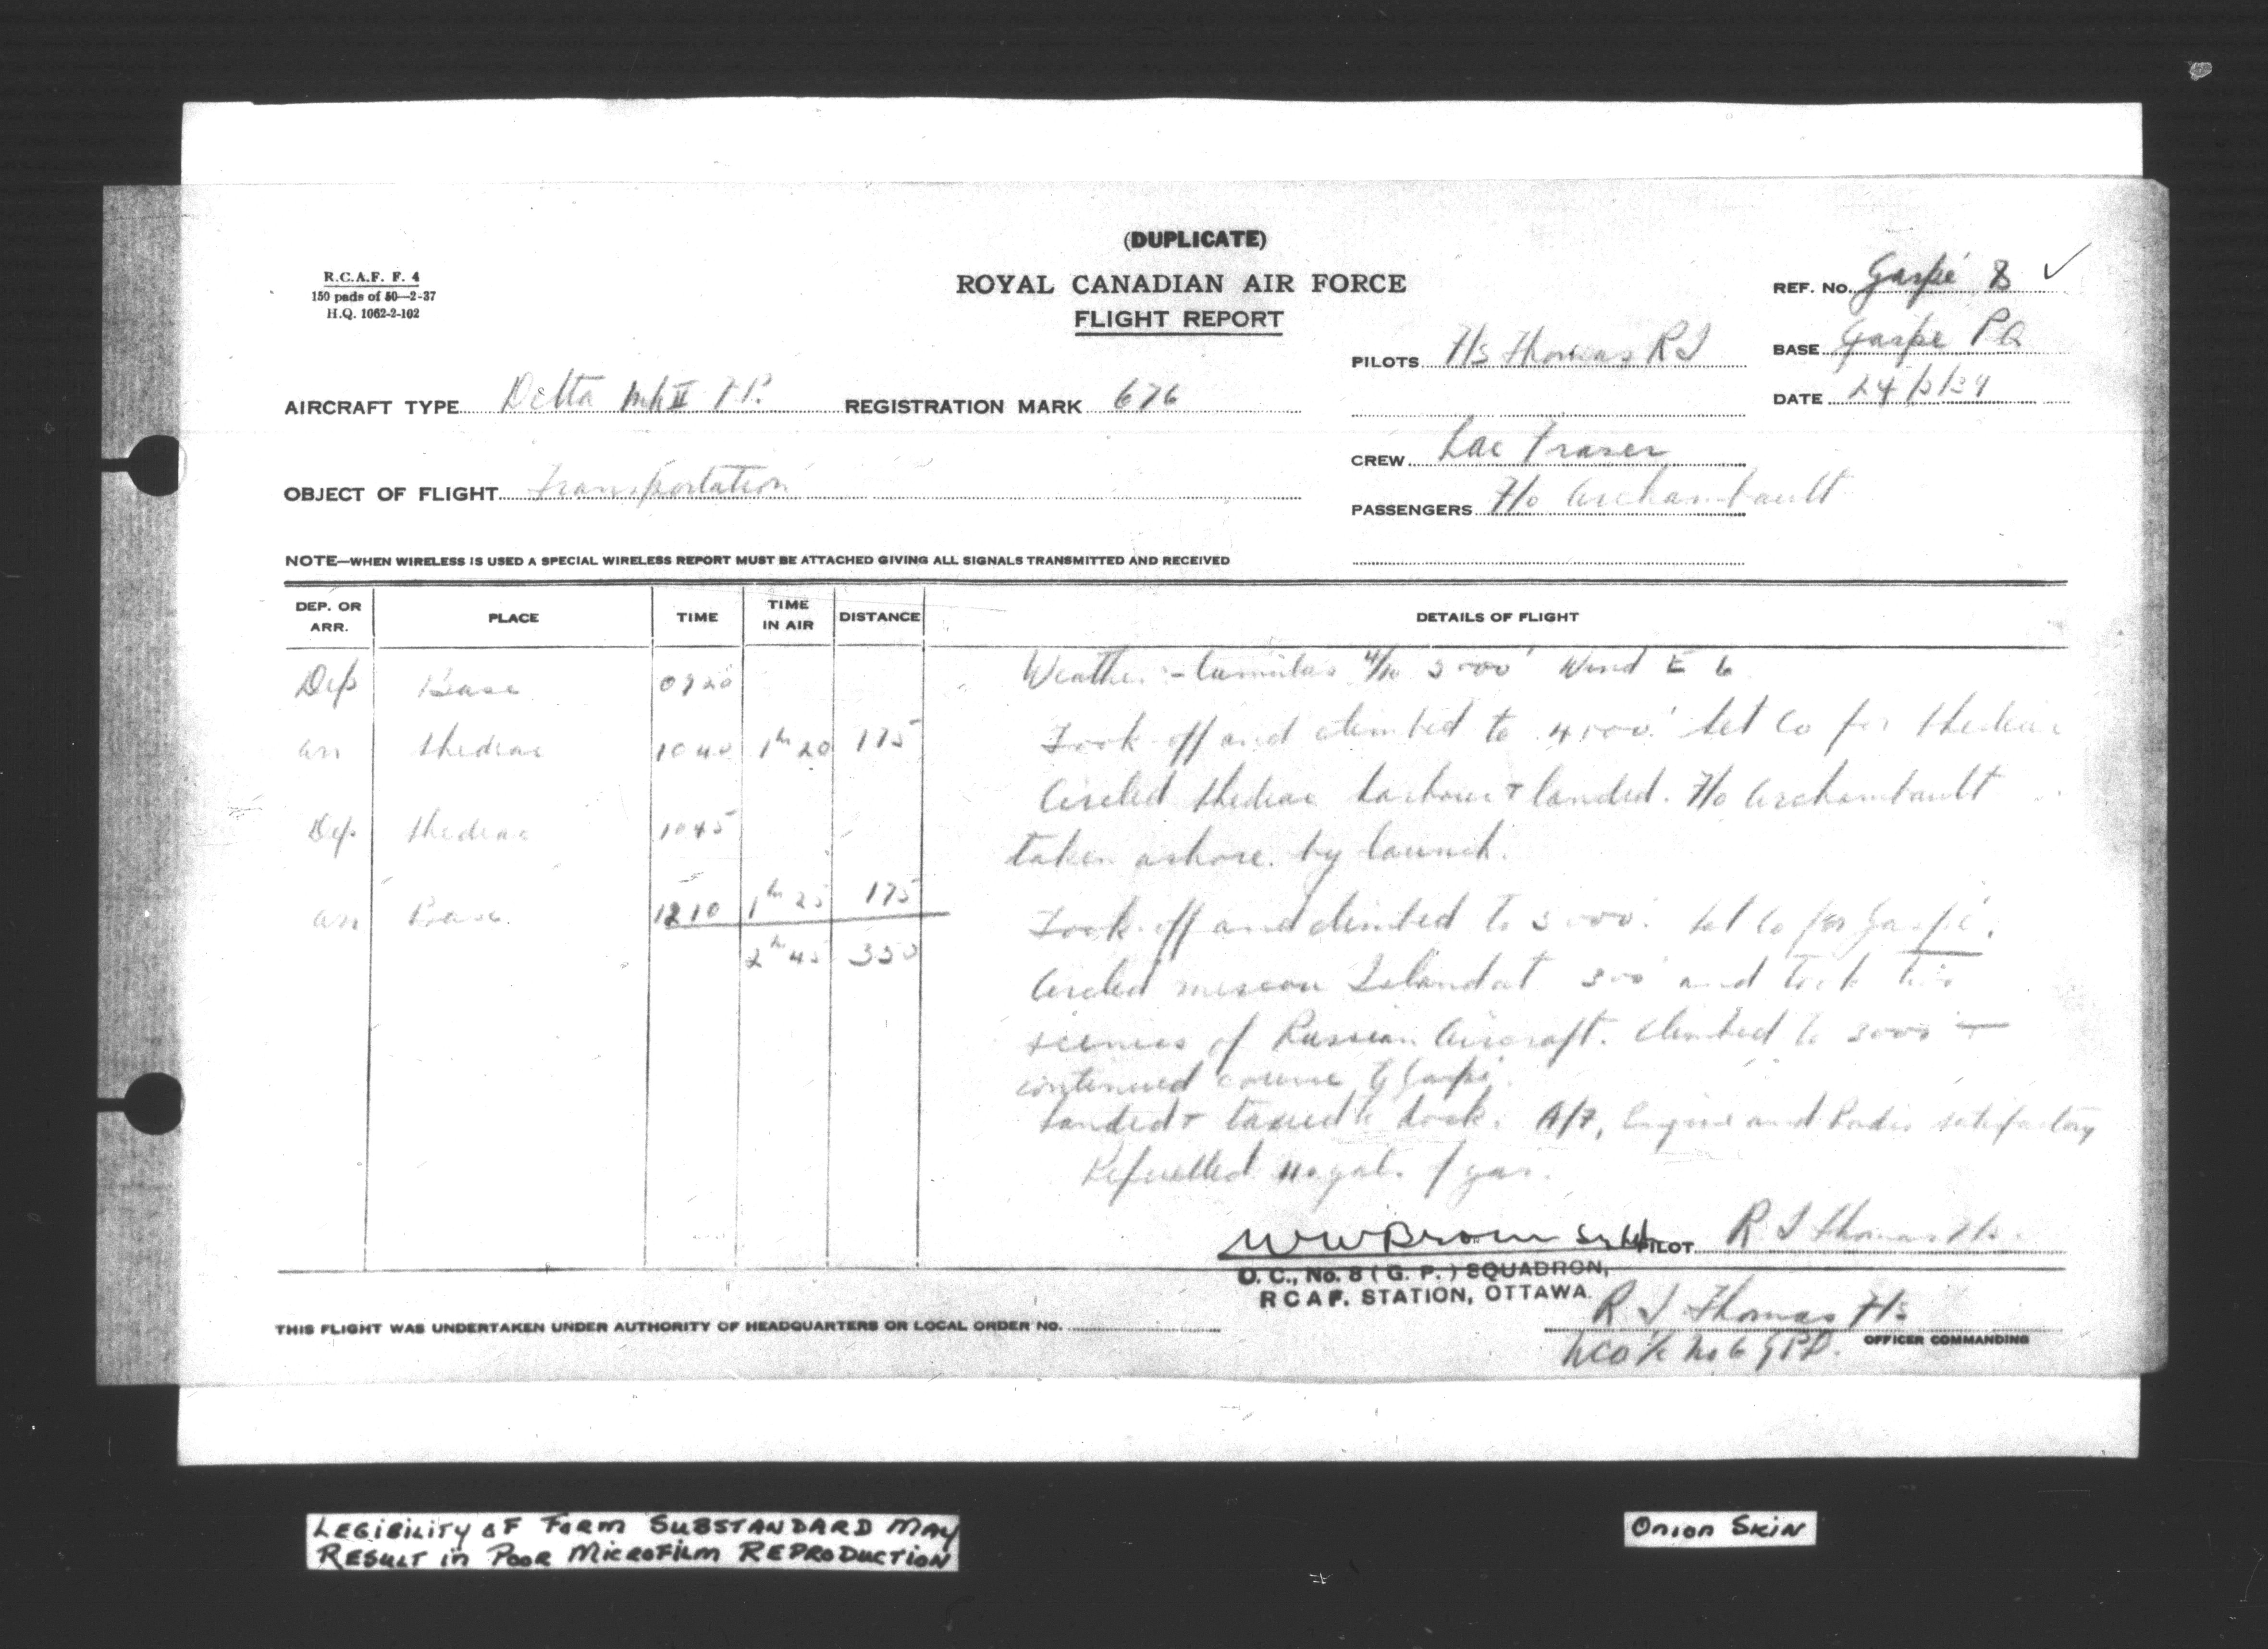 (DUPLICATE)
ROYAL CANADIAN AIR FORCE
FLIGHT REPORT
R.C.A.F. F. 4
150 pads of 50—2-37
H.Q. 1062-2-102
REF. NO. Gaspé 8 ✓
PILOTS F/S Thomas R J
BASE Gaspé PQ
AIRCRAFT TYPE Delta MkII F.P. REGISTRATION MARK 676
DATE 24/ /39
CREW Lac Fraser
OBJECT OF FLIGHT Transportation
PASSENGERS F/o Archambault
NOTE—WHEN WIRELESS IS USED A SPECIAL WIRELESS REPORT MUST BE ATTACHED GIVING ALL SIGNALS TRANSMITTED AND RECEIVED
DEP. OR ARR. PLACE TIME TIME IN AIR DISTANCE DETAILS OF FLIGHT
Dep Base 0920
Arr Shediac 1040 1h 20 175
Dep Shediac 1045
Arr Base. 1210 1h 25 175
2h 45 350
Weather :- Cumulus 4/10 3000' Wind E 6
Took off and climbed to 4000'. Set Co for Shediac
Circled Shediac harbour + landed. F/o Archambault
taken ashore by launch.
Took off and climbed to 3000'. Set Co for Gaspé.
Circled Miscou Island at 300' and took
scenes of Russian Aircraft. Climbed to 3000 +
continued course to Gaspé.
Landed + taxied to dock. A/F, Engine and Radio satisfactory
Refuelled 110 gals. of gas.
W W Brown S/Ldr
PILOT R J Thomas F/s.
O. C., No. 8 ( G. P. ) SQUADRON,
R C A F. STATION, OTTAWA.
R J Thomas F/s
THIS FLIGHT WAS UNDERTAKEN UNDER AUTHORITY OF HEADQUARTERS OR LOCAL ORDER NO.
OFFICER COMMANDING
NCO i/c No 6 GPD.
LEGIBILITY OF FORM SUBSTANDARD MAY
RESULT IN POOR MICROFILM REPRODUCTION
ONION SKIN